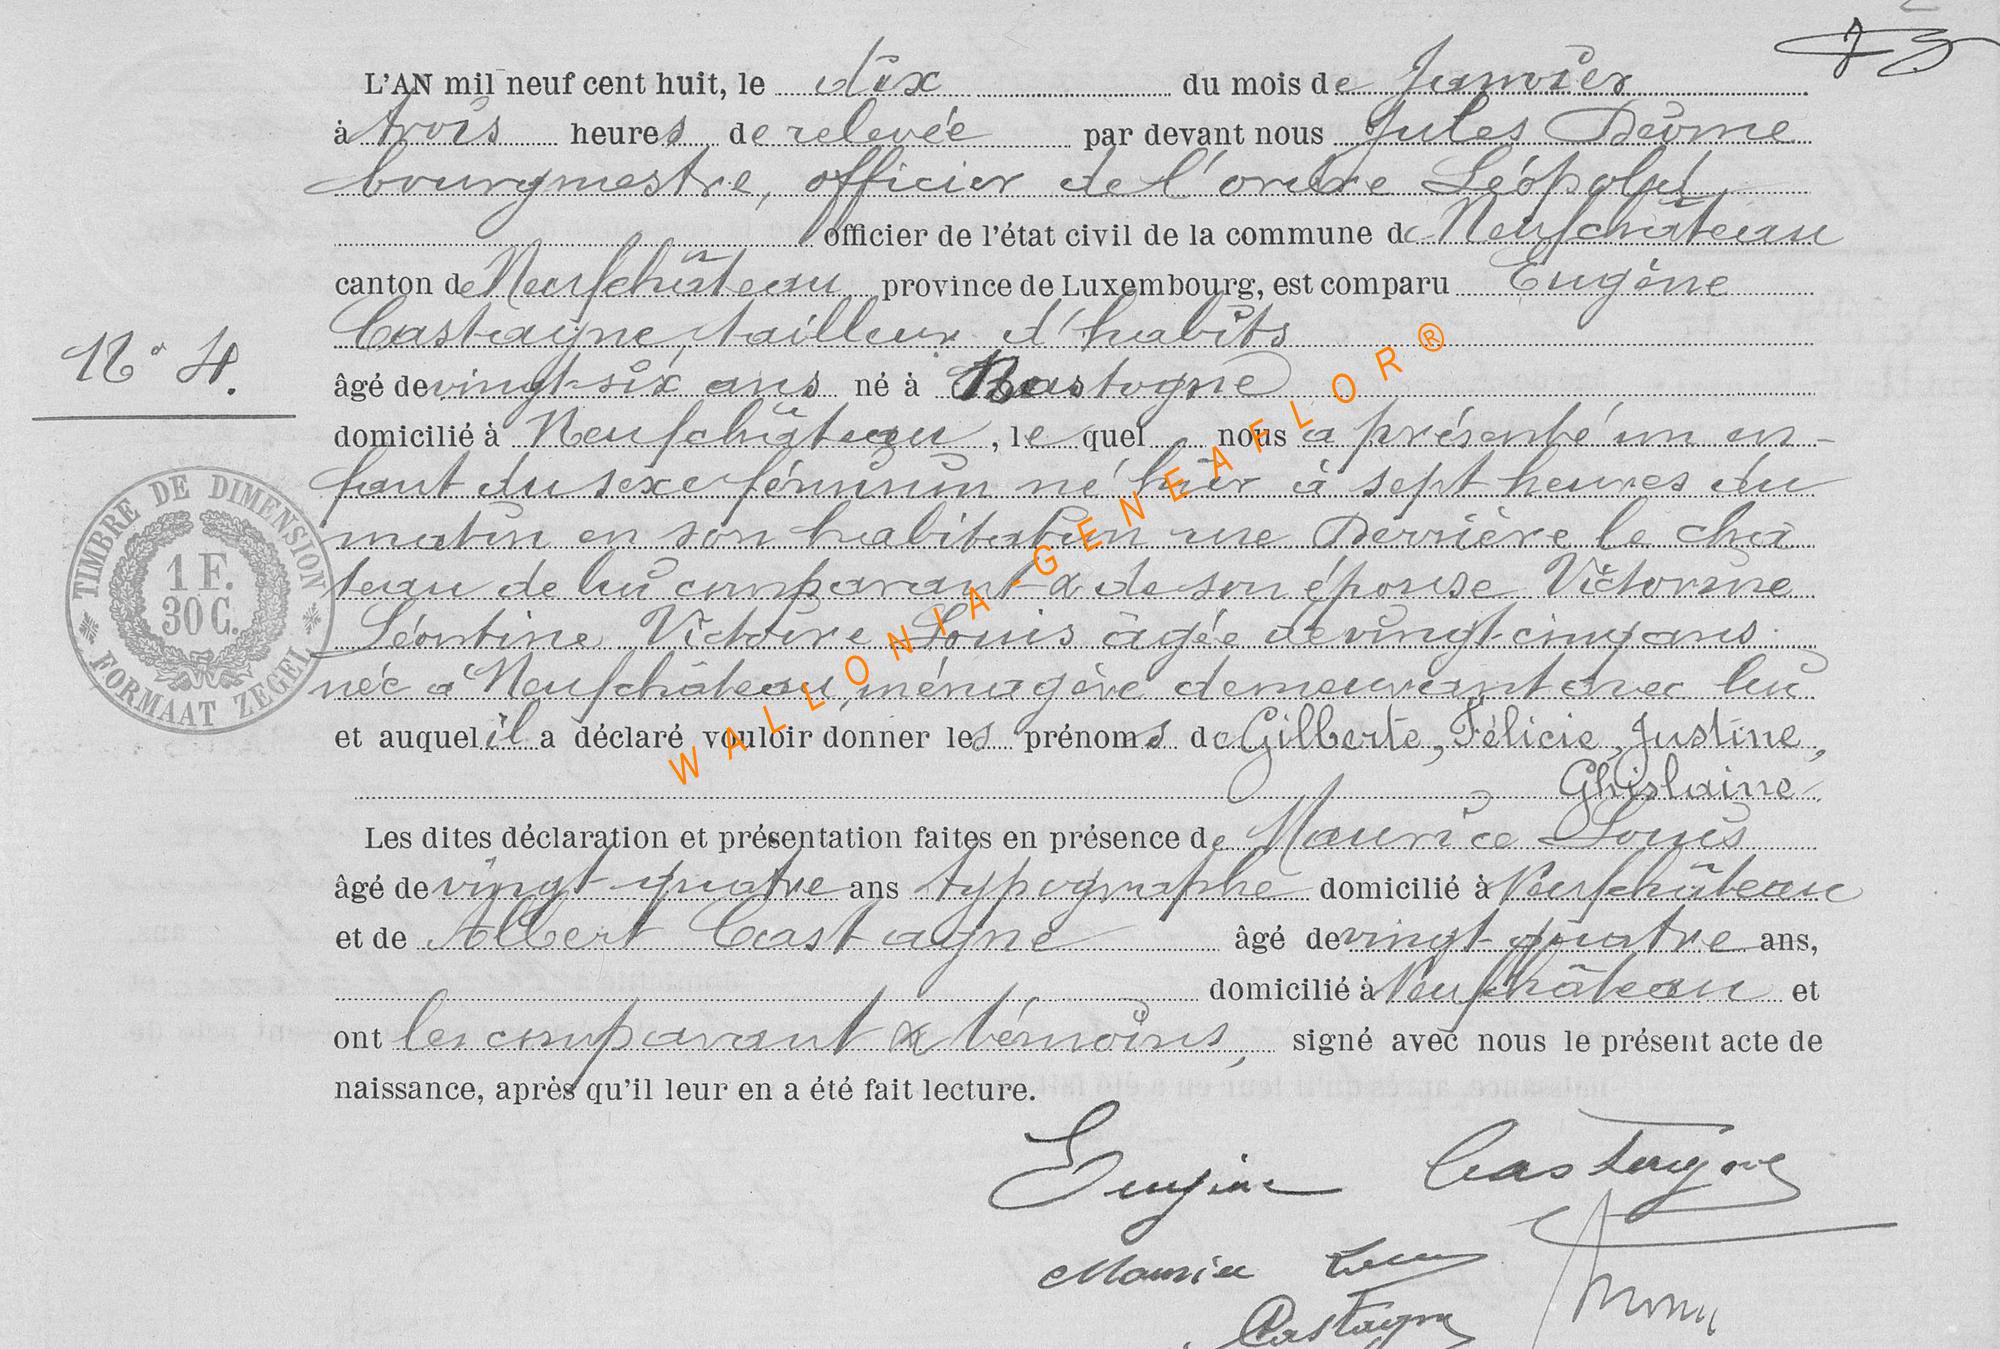 L'AN mil neuf cent huit, le dix du mois de Janvier
à trois heures de relevée par devant nous Jules
bourgmestre, officier de l'ordre Léopold,
officier de l'état civil de la commune de Neufchâteau
canton de Neufchâteau province de Luxembourg, est comparu Eugène
Castagne, tailleur d'habits
N° 4.
âgé de vingt-six ans né à Bastogne
domicilié à Neufchâteau, le quel nous a présenté un en-
fant du sexe féminin né hier à sept heures du
matin en son habitation rue Derrière le cha
teau de lui comparant & de son épouse Victorine
Léontine Victoire Louis âgée de vingt-cinq ans
née à Neufchâteau, ménagère demeurant avec lui
et auquel il a déclaré vouloir donner les prénoms de Gilberte, Félicie, Justine,
Ghislaine
Les dites déclaration et présentation faites en présence de Maurice Louis
âgé de vingt-quatre ans typographe domicilié à Neufchâteau
et de Albert Castagne âgé de vingt-quatre ans,
domicilié à Neufchâteau et
ont les comparant & témoins, signé avec nous le présent acte de
naissance, après qu'il leur en a été fait lecture.
Eugène Castagne
Maurice Louis
Castagne
TIMBRE DE DIMENSION
1 F.
30 C.
FORMAAT ZEGEL
WALLONIA-GENEAFLOR®